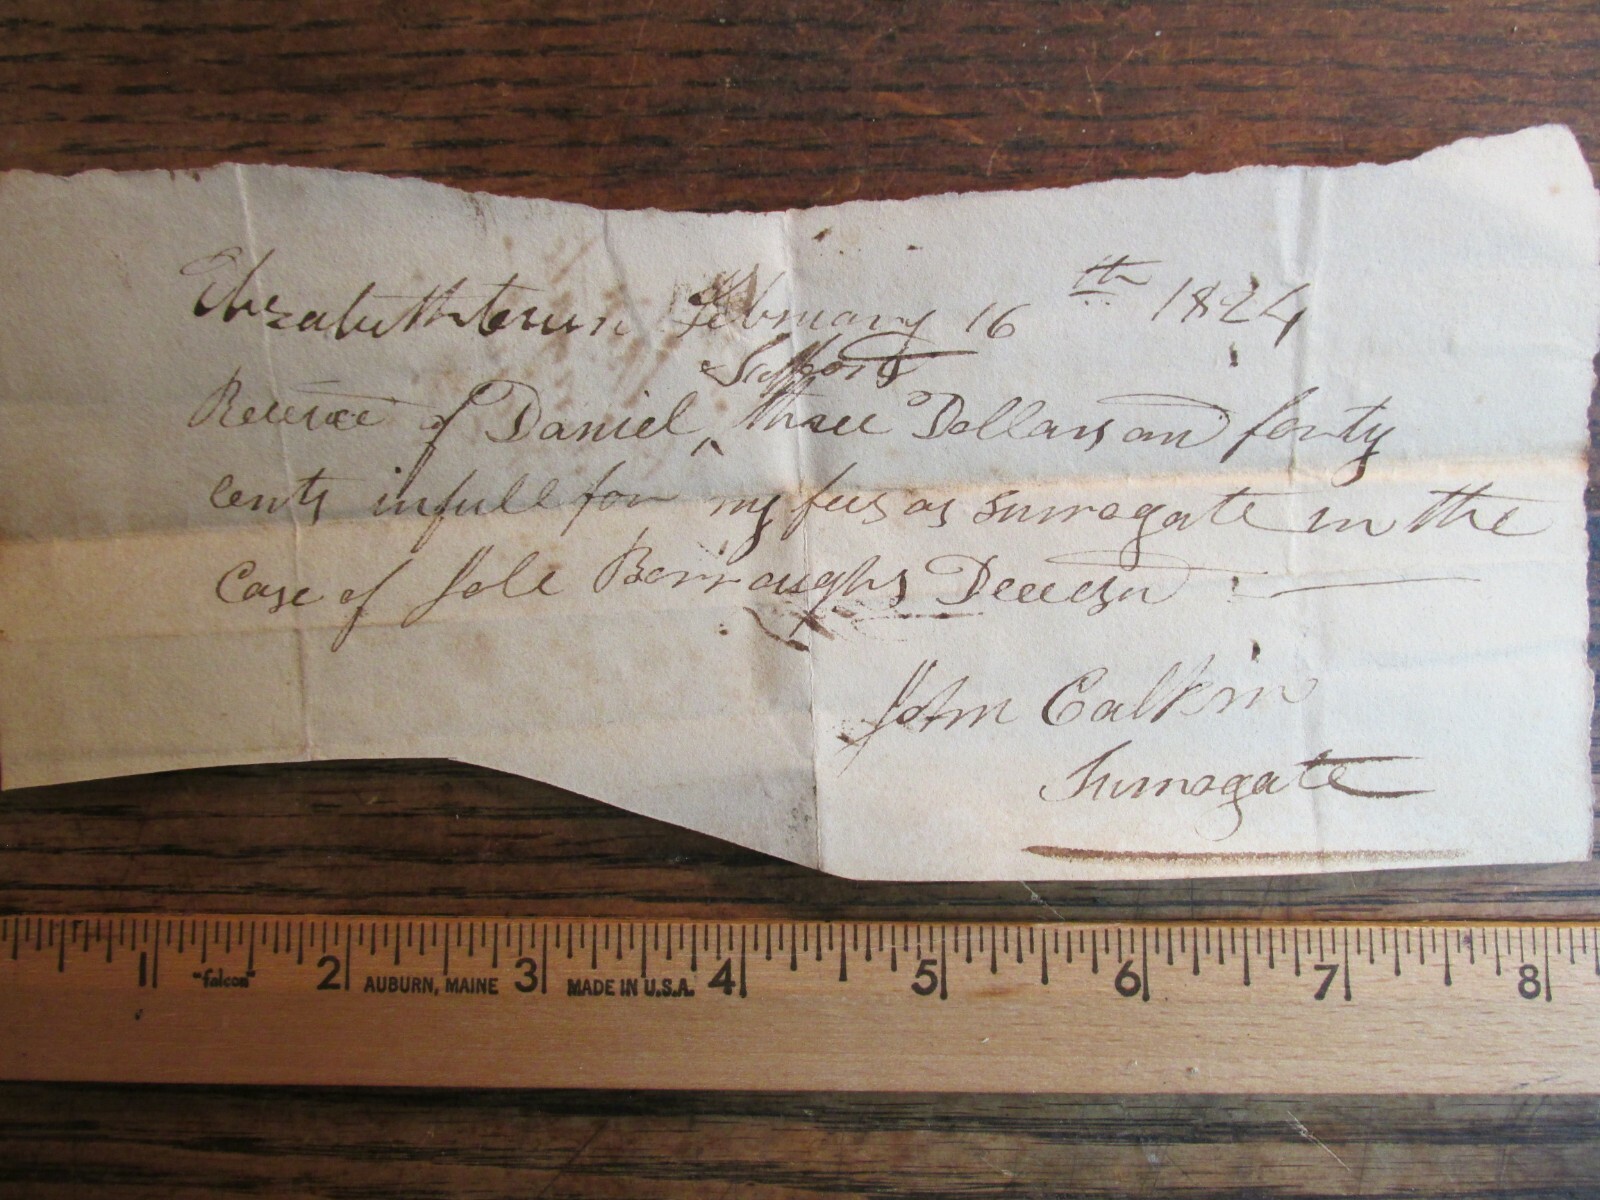 Elizabethtown February 16th 1824
Safford
Receivd of Daniel ^ three Dollars and forty
cents in full for my fees as surrogate in the
Case of Joll Borroughs Deceesd
John Calkin
Surrogate
1 "falcon" 2 AUBURN, MAINE 3 MADE IN U.S.A. 4 5 6 7 8